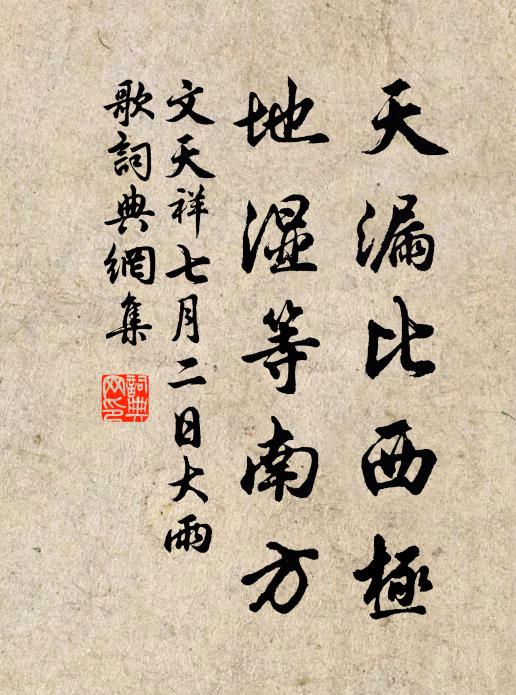 天漏比西極
地湿等南方
文天祥七月二日大雨
歌詞典網集
詞典
网印